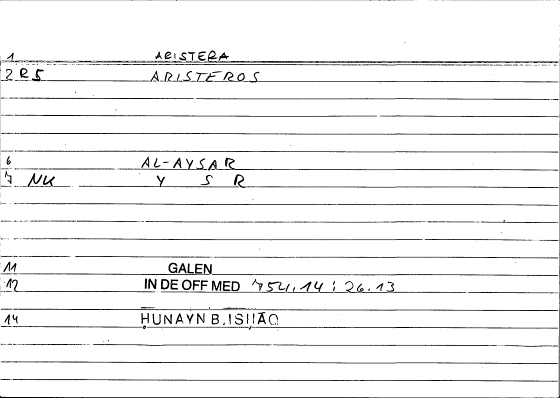 1 ARISTERA
2 R5 ARISTEROS
6 AL-AYSAR
7 NK Y S R
11 GALEN
12 IN DE OFF MED 754,14 : 26.13
14 ḤUNAYN B. ISḤĀQ